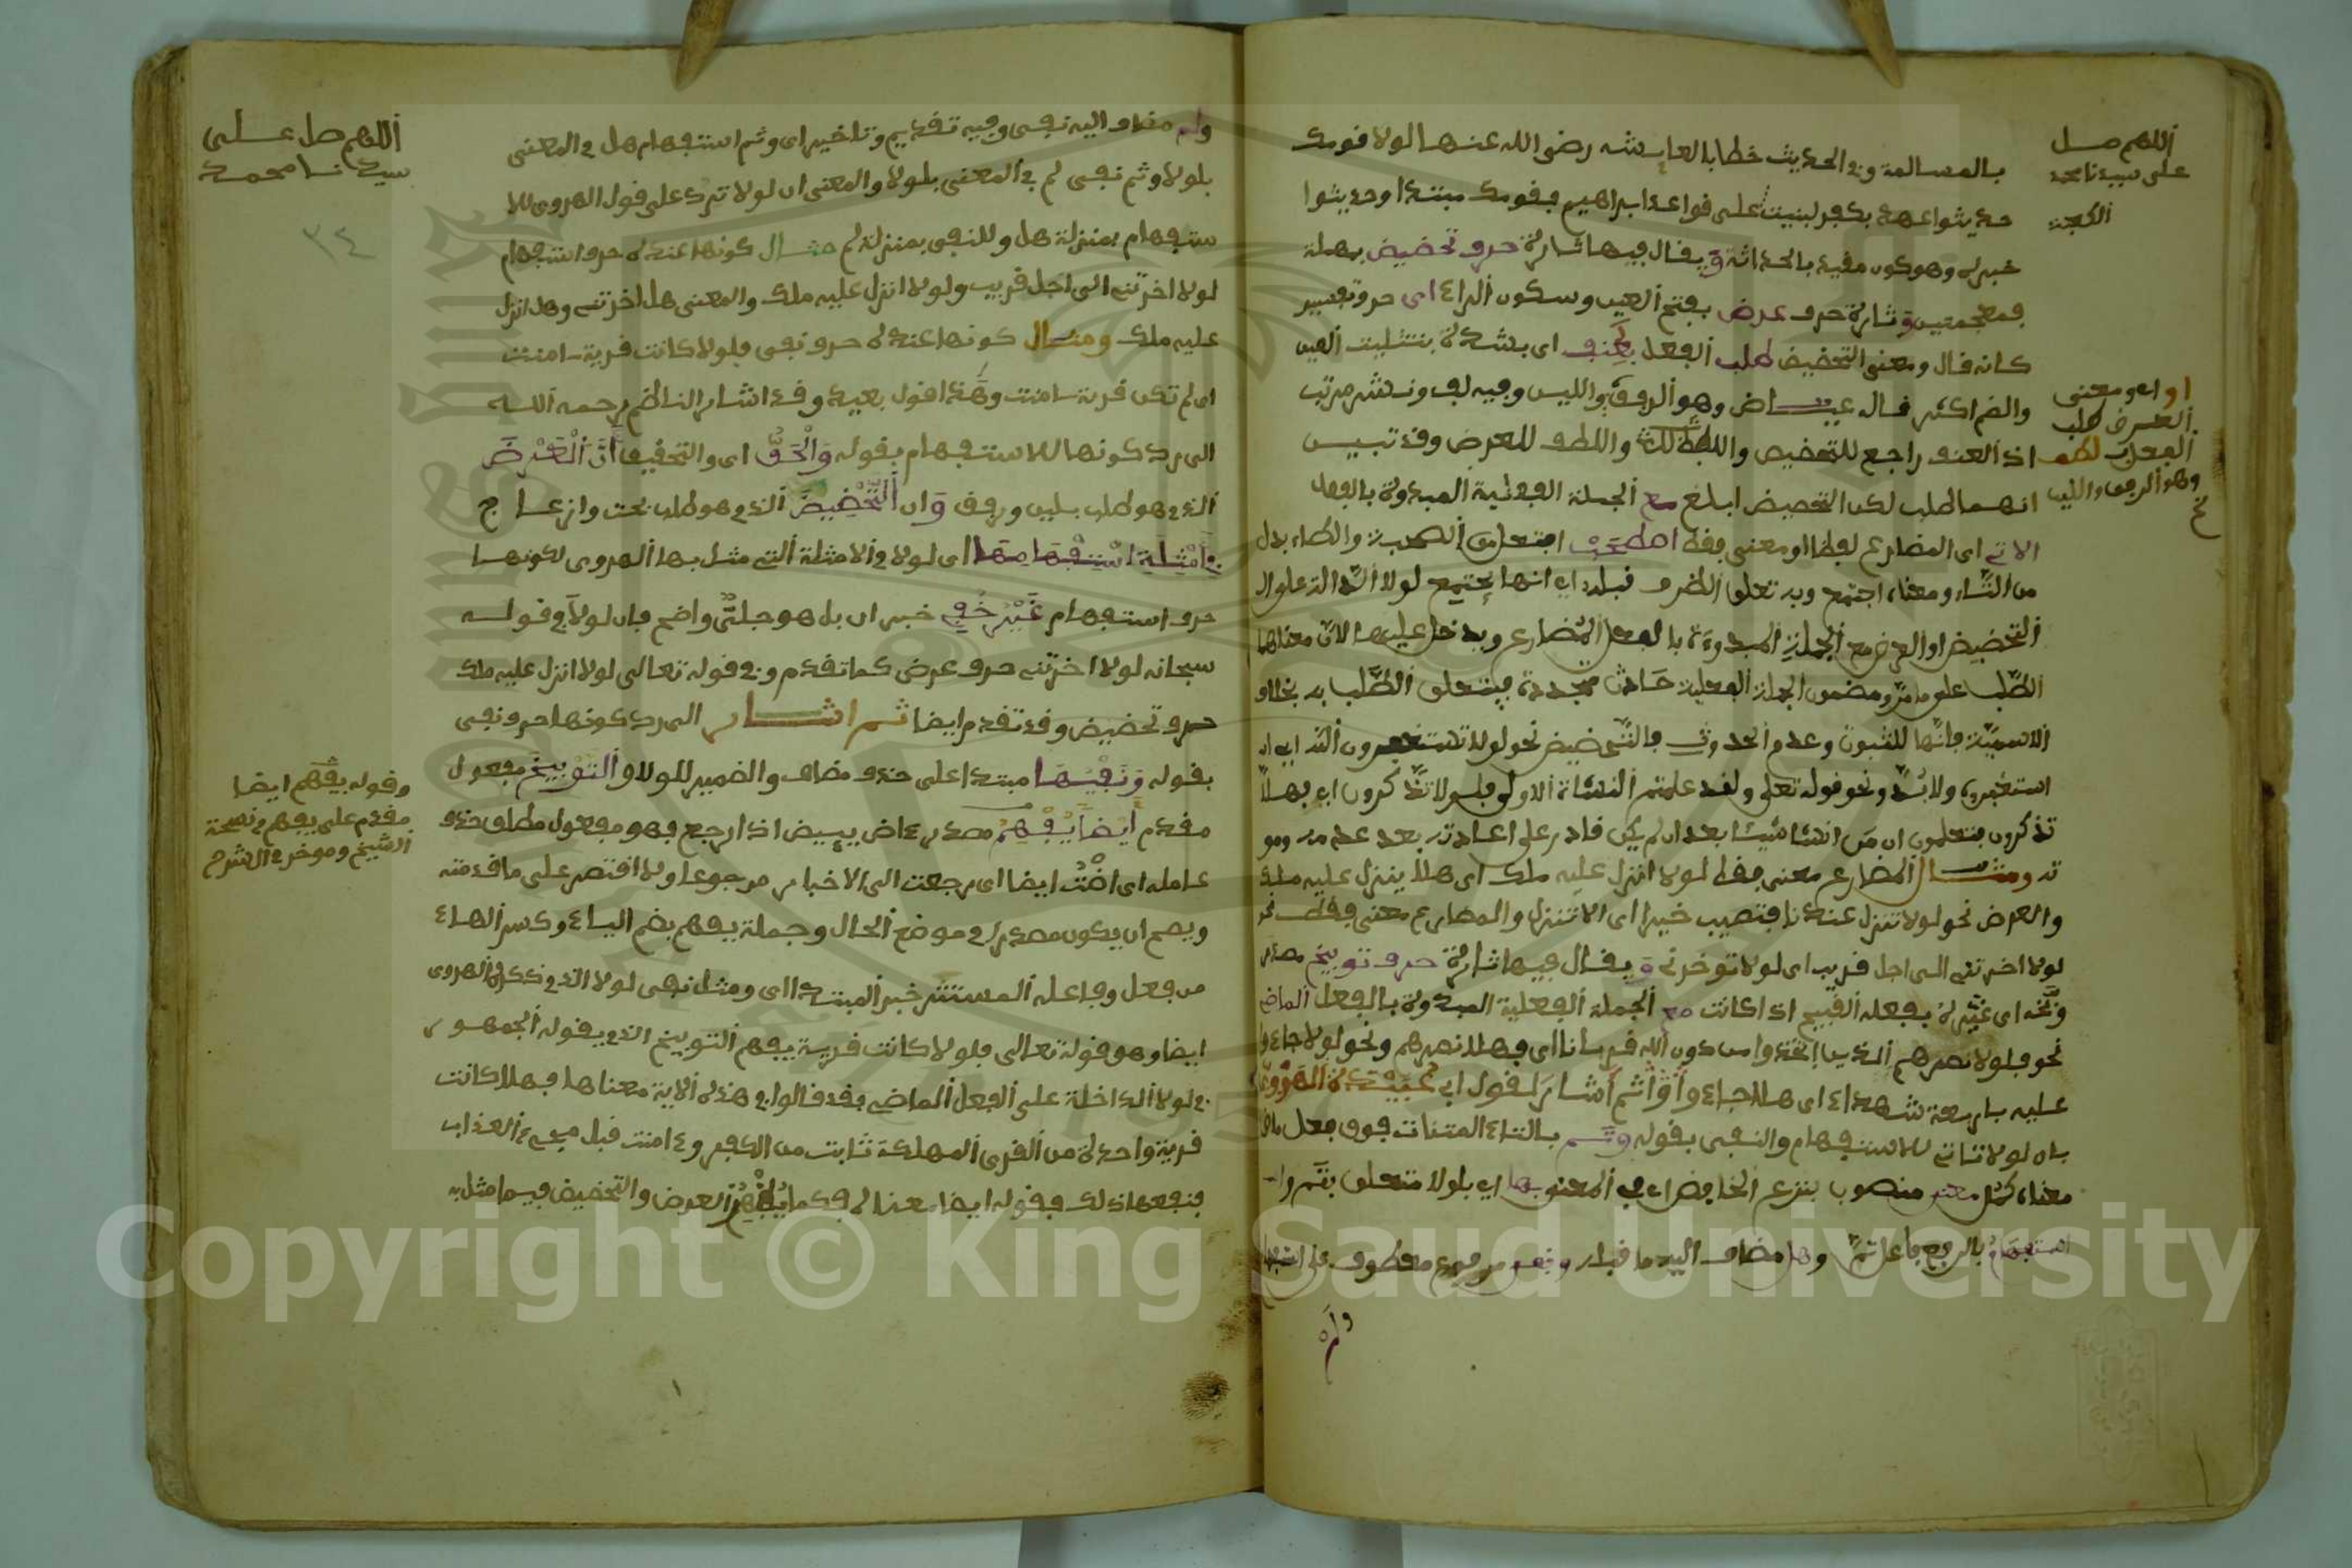 اللهم صل
على سيدنا محمد
بالمسالمة وفي الحديث خطابا لعايشة رضي الله عنها لولا قومك
حديثوا عهد بكفر لبنيت على قواعد ابراهيم فقومك مبتدا وحديثوا
خبره وهو كون مقيد بالحداثة ويقال فيها تارة حرف تحضيض بمهملة
فمعجمتين وتارة حرف عرض بفتح العين وسكون الراء اى حرف تفسير
كانه قال ومعنى التحضيض طلب الفعل بعنف اى بشدة بتثليث العين
والضم اكثر قاله عياض وهو الرفق واللين وفيه لف ونشر مرتب
او اى ومعنى
العرض طلب
الفعل بلطف
وهو الرفق واللين
اذ العنف راجع للتحضيض واللطف للعرض وقد تبين
انهما طلب لكن التحضيض ابلغ مع الجملة الفعلية المبدوة بالفعل
الاتي اى المضارع لفظا او معنى فقط اصطحب افتعل من الصحبة والطاء بدل
من التاء ومعناه اجتمع وبه تعلق الظرف قبله اى انها تجتمع لولا الدالة على
التحضيض او العرض مع الجملة المبدوءة بالفعل المضارع ويدخل عليها لان معناها
الطلب على ما مر ومضمون الجملة الفعلية حادث متجدد فيتعلق الطلب به بخلاف
الاسمية فانها للثبوت وعدم الحدوث فالتحضيض نحو لولا تستغفرون الله اى
استغفروه ولا بد ونحو قوله تعلى ولقد علمتم النشاة الاولى فلولا تذكرون اى فهلا
تذكرون فتعلمون ان من انشا شيئا بعد ان لم يكن قادر على اعادته بعد عدمه
ومثال المضارع معنى فقط لولا انزل عليه ملك اى هلا ينزل عليه ملك
والعرض نحو لولا تنزل عندنا فتصيب خيرا اى الا تنزل والمضارع معنى فقط نحو
لولا اخرتني الى اجل قريب اى لولا توخرني ويقال فيها تارة حرف توبيخ مصدر
وبخه اى عيره بفعله القبيح اذا كانت مع الجملة الفعلية المبدوة بالفعل الماضي
نحو فلولا نصرهم الذين اتخذوا من دون الله قربانا اى فهلا نصرهم ونحو لولا جاءوا
عليه باربعة شهداء اى هلا جاءوا ثم اشار لقول ابي عبيدة الهروي
بان لولا تاتي للاستفهام والنفي بقوله وتم بالتاء المثناة فوق فعل ماض
معناه كمل معنى منصوب بنزع الخافض اى في المعنى بها اى بلولا متعلق بتم
استفهام بالرفع فاعل تم وهل مضاف اليه ما قبله ونفي مرفوع معطوف على استفهام
ولم
اللهم صل على
سيدنا محمد
٣٤
ولم مضاف اليه نفى وفيه تقديم وتاخير اى وتم استفهام هل في المعنى
بلولا وتم نفى لم في المعنى بلولا والمعنى ان لولا ترد على قول الهروي للا
ستفهام بمنزلة هل وللنفي بمنزلة لم مثال كونها عنده حرف استفهام
لولا اخرتني الى اجل قريب ولولا انزل عليه ملك والمعنى هل اخرتني وهل انزل
عليه ملك ومثال كونها عنده حرف نفى فلولا كانت قرية ءامنت
اى لم تكن قرية ءامنت وهذا قول بعيد وقد اشار الناظم رحمه الله
الى رد كونها للاستفهام بقوله والحق اى والتحقيق ان العرض
الذي هو طلب بلين ورفق وان التحضيض الذي هو طلب بحث وازعاج
في امثلة استفهامها اى لولا في الامثلة التي مثل بها الهروي لكونها
حرف استفهام غير خفي خبر ان بل هو جلي واضح فان لولا في قوله
سبحانه لولا اخرتني حرف عرض كما تقدم وفي قوله تعالى لولا انزل عليه ملك
حرف تحضيض وقد تقدم ايضا ثم اشار الى رد كونها حرف نفى
بقوله ونفيها مبتدا على حذف مضاف والضمير للولا والتوبيخ مفعول
مقدم ايضا يفهم مصدر ءاض يييض اذا رجع فهو مفعول مطلق حذف
عامله اى اضت ايضا اى رجعت الى الاخبار مرجوعا ولا اقتصر على ما قدمته
ويصح ان يكون مصدرا في موضع الحال وجملة يفهم بضم الياء وكسر الهاء
من فعل وفاعله المستتر خبر المبتدا اى ومثل نفى لولا الذي ذكره الهروي
ايضا وهو قوله تعالى فلولا كانت قرية يفهم التوبيخ الذي يقوله الجمهور
في لولا الداخلة على الفعل الماضي فقد قالوا في هذه الاية معناها فهلا كانت
قرية واحدة من القرى المهلكة ثابت من الكفر وءامنت قبل مجىء العذاب
فنفعها ذلك فقوله ايضا معناه فكما يفهم العرض والتحضيض فيما مثل به
وقوله يفهم ايضا
مقدم على يفهم في نسخة
الشيخ وموخر في الشرح
Copyright © King Saud University